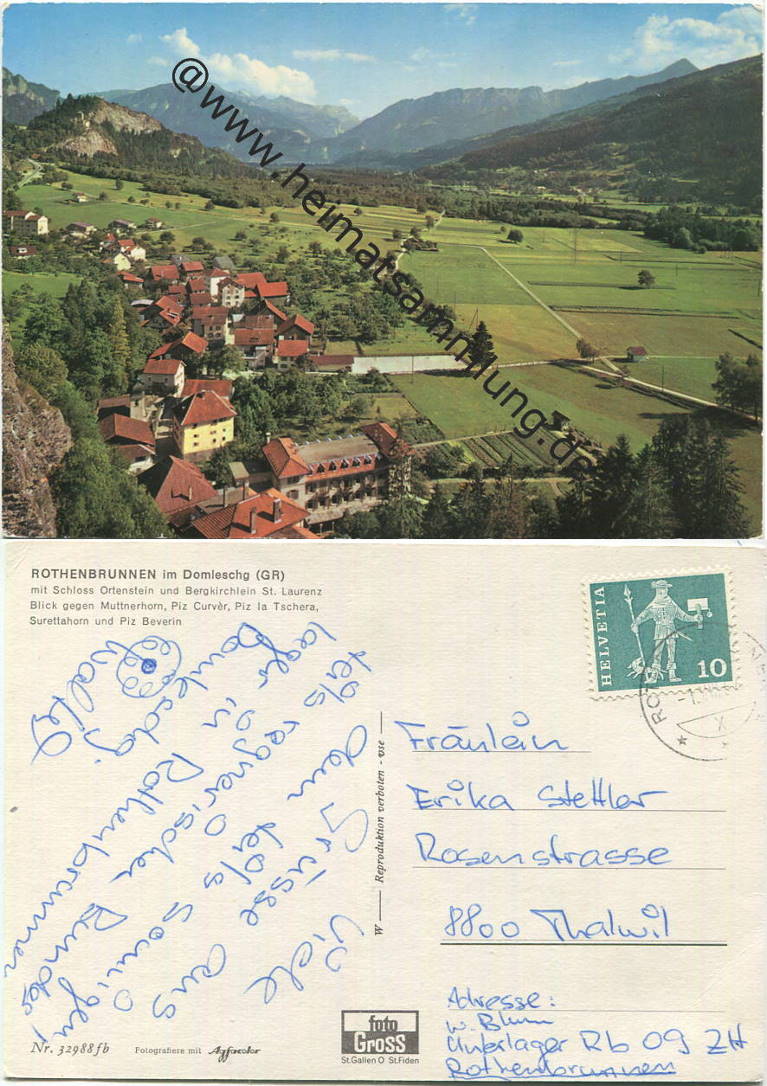 @www.heimatsammlung.de
ROTHENBRUNNEN im Domleschg (GR)
mit Schloss Ortenstein und Bergkirchlein St. Laurenz
Blick gegen Muttnerhorn, Piz Curvèr, Piz la Tschera,
Surettahorn und Piz Beverin
HELVETIA
10
Viele
Grüsse aus
dem teils sonnigen,
teils regnerischen Bundes
lager in Rothenbrunnen
Domleschg.
Walter
W — Reproduktion verboten - vse —
Fräulein
Erika Stettler
Rosenstrasse
8800 Thalwil
Adresse:
W. Blum
Unterlager Rb 09 ZH
Rothenbrunnen
Nr. 32988fb
Fotografiere mit Agfacolor
foto
GROSS
St.Gallen O St.Fiden